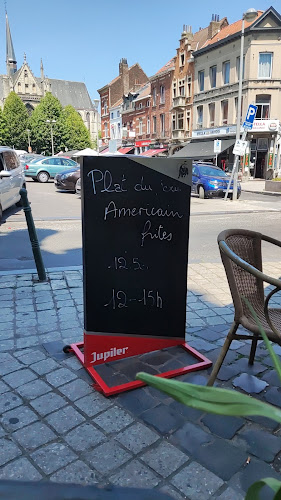 Pla du
Americain
frites
12 50
12--15h
Jupiler
P